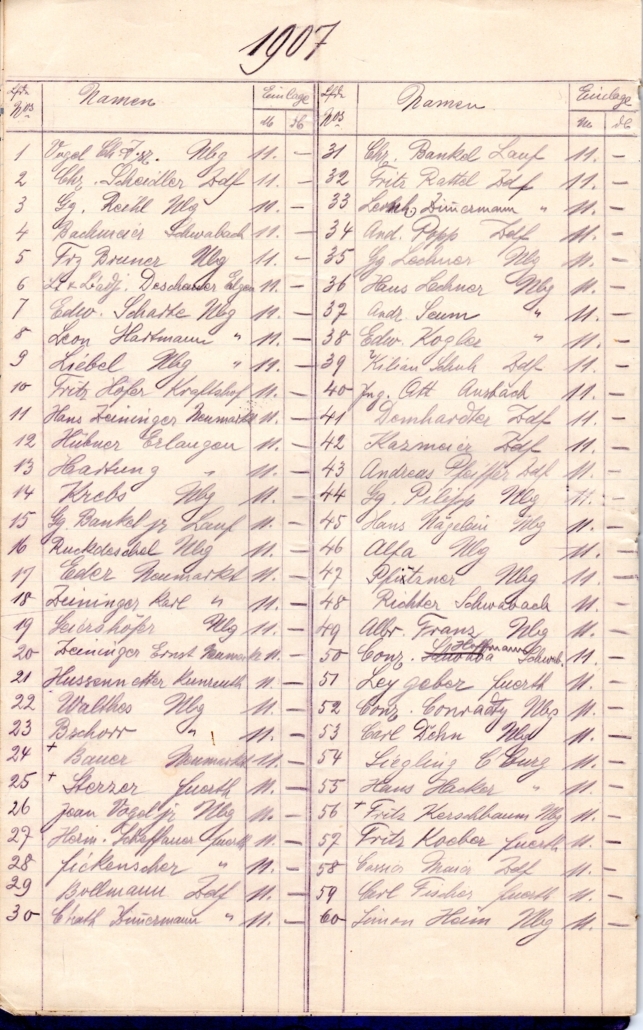 1907
Lfde Nos Namen Einlage M. ₰
1 Vogel Chr. Nbg 11. —
2 Chr. Scheidler Zdf 11. —
3 Gg. Reehl Nbg 11. —
4 Bachmeier Schwabach 11. —
5 Frz Bruner Nbg 11. —
6 11. —
7 Edw. Scharte Nbg 11. —
8 Leon Hartmann " 11. —
9 Liebel Nbg " 11. —
10 Fritz Höfer Kraftshof 11. —
11 Hans Deininger Neumarkt 11. —
12 Hübner Erlangen 11. —
13 Hartung " 11. —
14 Krebs Nbg 11. —
15 Gg Bankel jr Lauf 11. —
16 Ruckdeschel Nbg 11. —
17 Eder Neumarkt 11. —
18 Deininger Karl " 11. —
19 Leiershöfer Nbg 11. —
20 Deininger Ernst Neumarkt 11. —
21 Hussennetter 11. —
22 Walther Nbg 11. —
23 Bschorr " 11. —
24 + Bauer Neumarkt 11. —
25 + Sterzer Fuerth 11. —
26 Jean Vogel jr Nbg 11. —
27 Herm. Scheffauer Fuerth 11. —
28 Fickenscher " 11. —
29 Bollmann Zdf 11. —
30 Zimmermann " 11. —
Lfde Nos Namen Einlage M. ₰
31 Chr. Bankel Lauf 11. —
32 Fritz Rattel Zdf 11. —
33 Leonh. Zimmermann " 11. —
34 And. Popp Zdf 11. —
35 Gg Lochner Nbg 11. —
36 Hans Lechner Nbg 11. —
37 Andr. Seum " 11. —
38 Edw. Kogler " 11. —
39 Kilian Schuh Zdf 11. —
40 Jng. Ott Ansbach 11. —
41 Domhardter Zdf 11. —
42 Kazmeier Zdf 11. —
43 Andreas Pfeiffer Zdf 11. —
44 Gg. Pilipp Nbg 11. —
45 Hans Nägelein Nbg 11. —
46 Alfa Nbg 11. —
47 Pfitzner Nbg 11. —
48 Richter Schwabach 11. —
49 Albr. Franz Nbg 11. —
50 Conr. Hoffmann Schwab. 11. —
51 Leygeber Fuerth 11. —
52 Conr. Conradty Nbg 11. —
53 Carl Dehn Nbg 11. —
54 Siegling C'burg 11. —
55 Hans Hacker " 11. —
56 + Fritz Kerschbaum Nbg 11. —
57 Fritz Koeber Fuerth 11. —
58 Maier Zdf 11. —
59 Carl Fischer Fuerth 11. —
60 Simon Heim Nbg 11. —